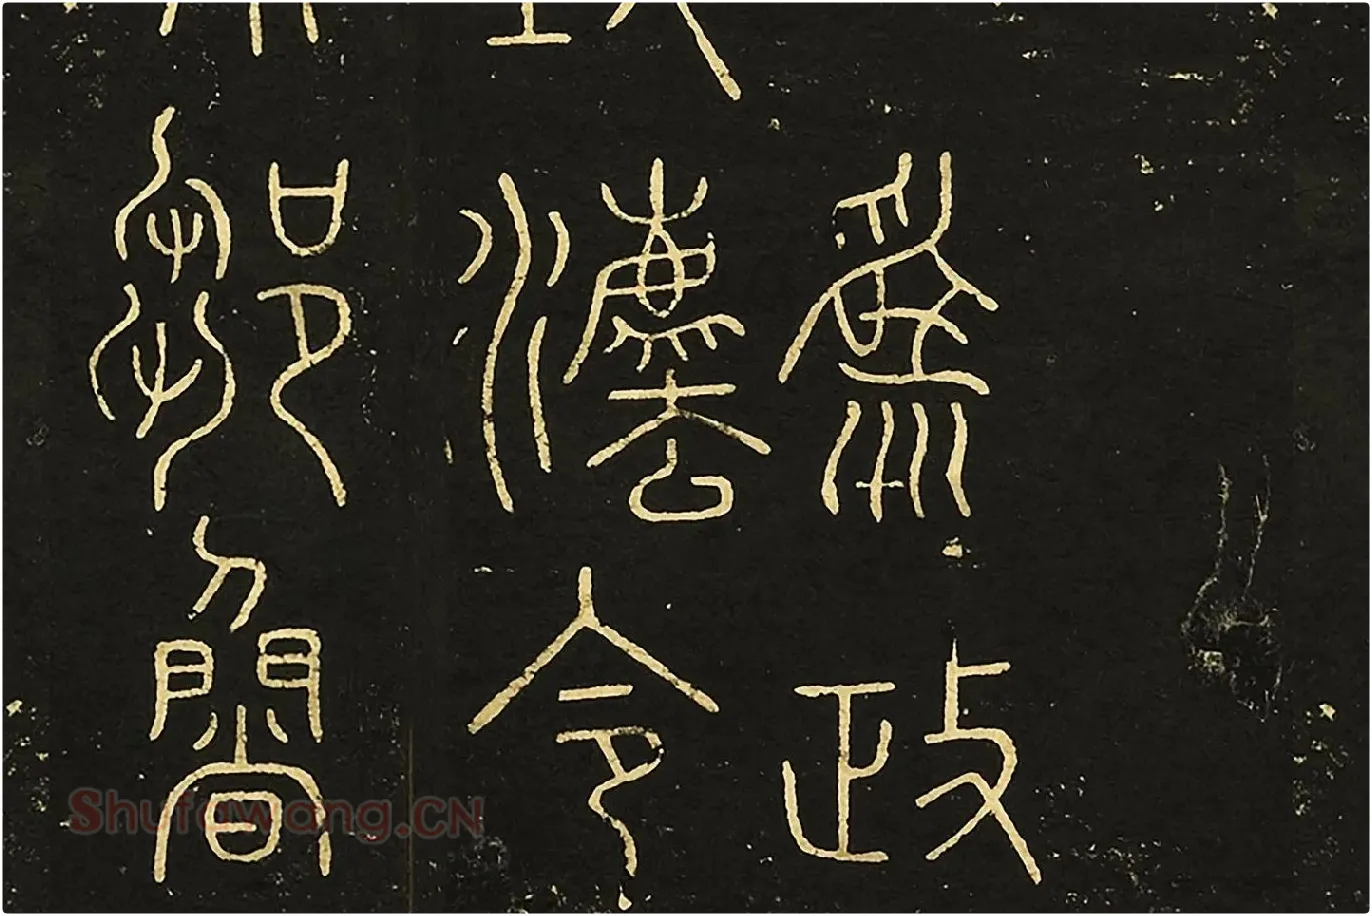 為政
灋令
鄒
Shufawang.CN